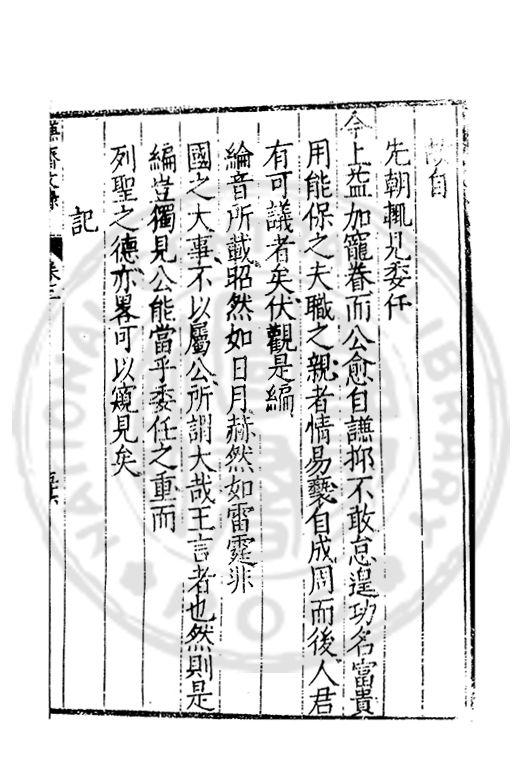 自
先朝輒見委任
今上益加寵眷而公愈自謙抑不敢怠遑功名富貴
用能保之夫職之親者情易褻自成周而後人君
有可議者矣伏觀是編
綸音所載昭然如日月赫然如雷霆非
國之大事不以屬公所謂大哉王言者也然則是
編豈獨見公能當乎委任之重而
列聖之德亦畧可以窺見矣
記
謙齋文錄
NATIONAL LIBRARY